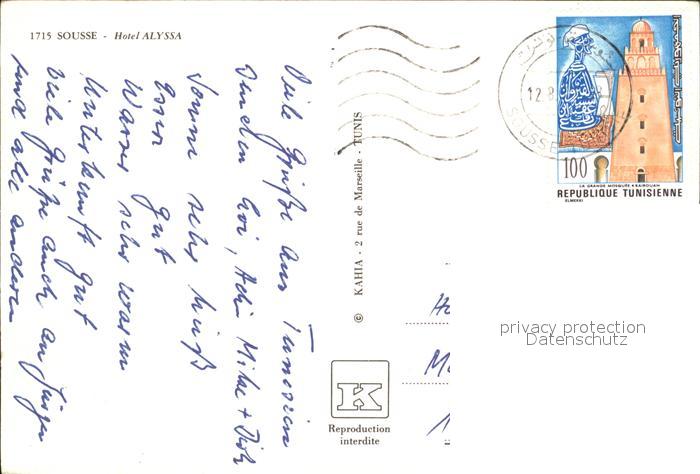 1715 SOUSSE - Hotel ALYSSA
Viele Grüße aus Tunesien
senden Evi, Adi, Mike + Dirk
Sonne sehr heiß
Essen gut
Wasser sehr warm
Unterkunft gut
Viele Grüße auch an Jürgen
und alle anderen
© KAHIA - 2 rue de Marseille - TUNIS
K
Reproduction
interdite
12.8.
SOUSSE
100
LA GRANDE MOSQUÉE KAIROUAN
REPUBLIQUE TUNISIENNE
ELMEKKI
privacy protection
Datenschutz